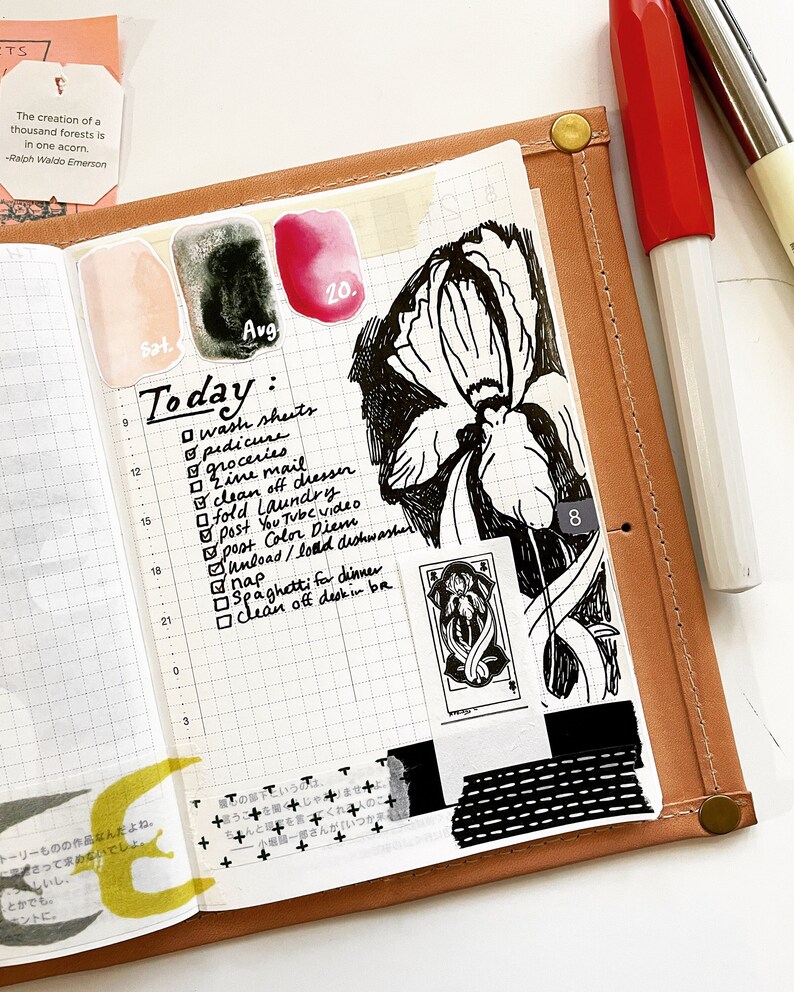 The creation of a
thousand forests is
in one acorn.
-Ralph Waldo Emerson
Sat.
Aug.
20.
Today:
wash sheets
pedicure
groceries
Zine mail
clean off dresser
fold laundry
post YouTube video
post Color Diem
unload/load dishwasher
nap
Spaghetti for dinner
Clean off desk in BR
9
12
15
18
21
0
3
8
トーリーものの作品なんだよね。
しいし、
とかでも。
ホントに。